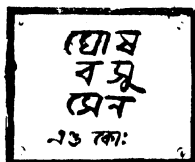 ঘোষ
বসু
সেন
এণ্ড কোং